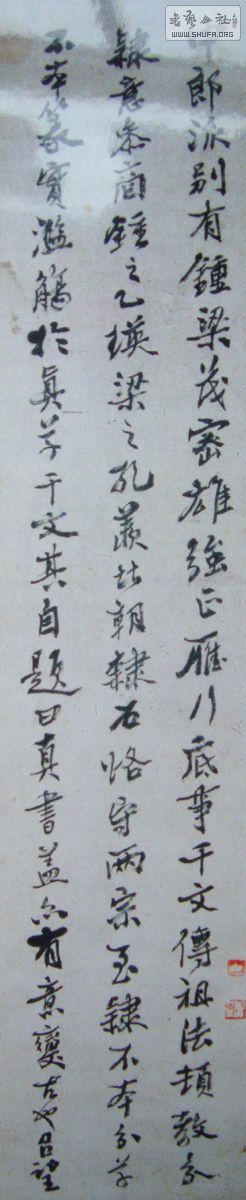 書法公社
www.SHUFA.ORG
中郎派别有鍾梁茂密雄強正雁行底事千文傳祖法頓教分
隸意參商鍾之乙瑛梁之孔羨皆朝隸石恪守兩宗至隸不本分草
不本篆實濫觴於眞草千文其自題曰真書蓋亦有意變古也吕望